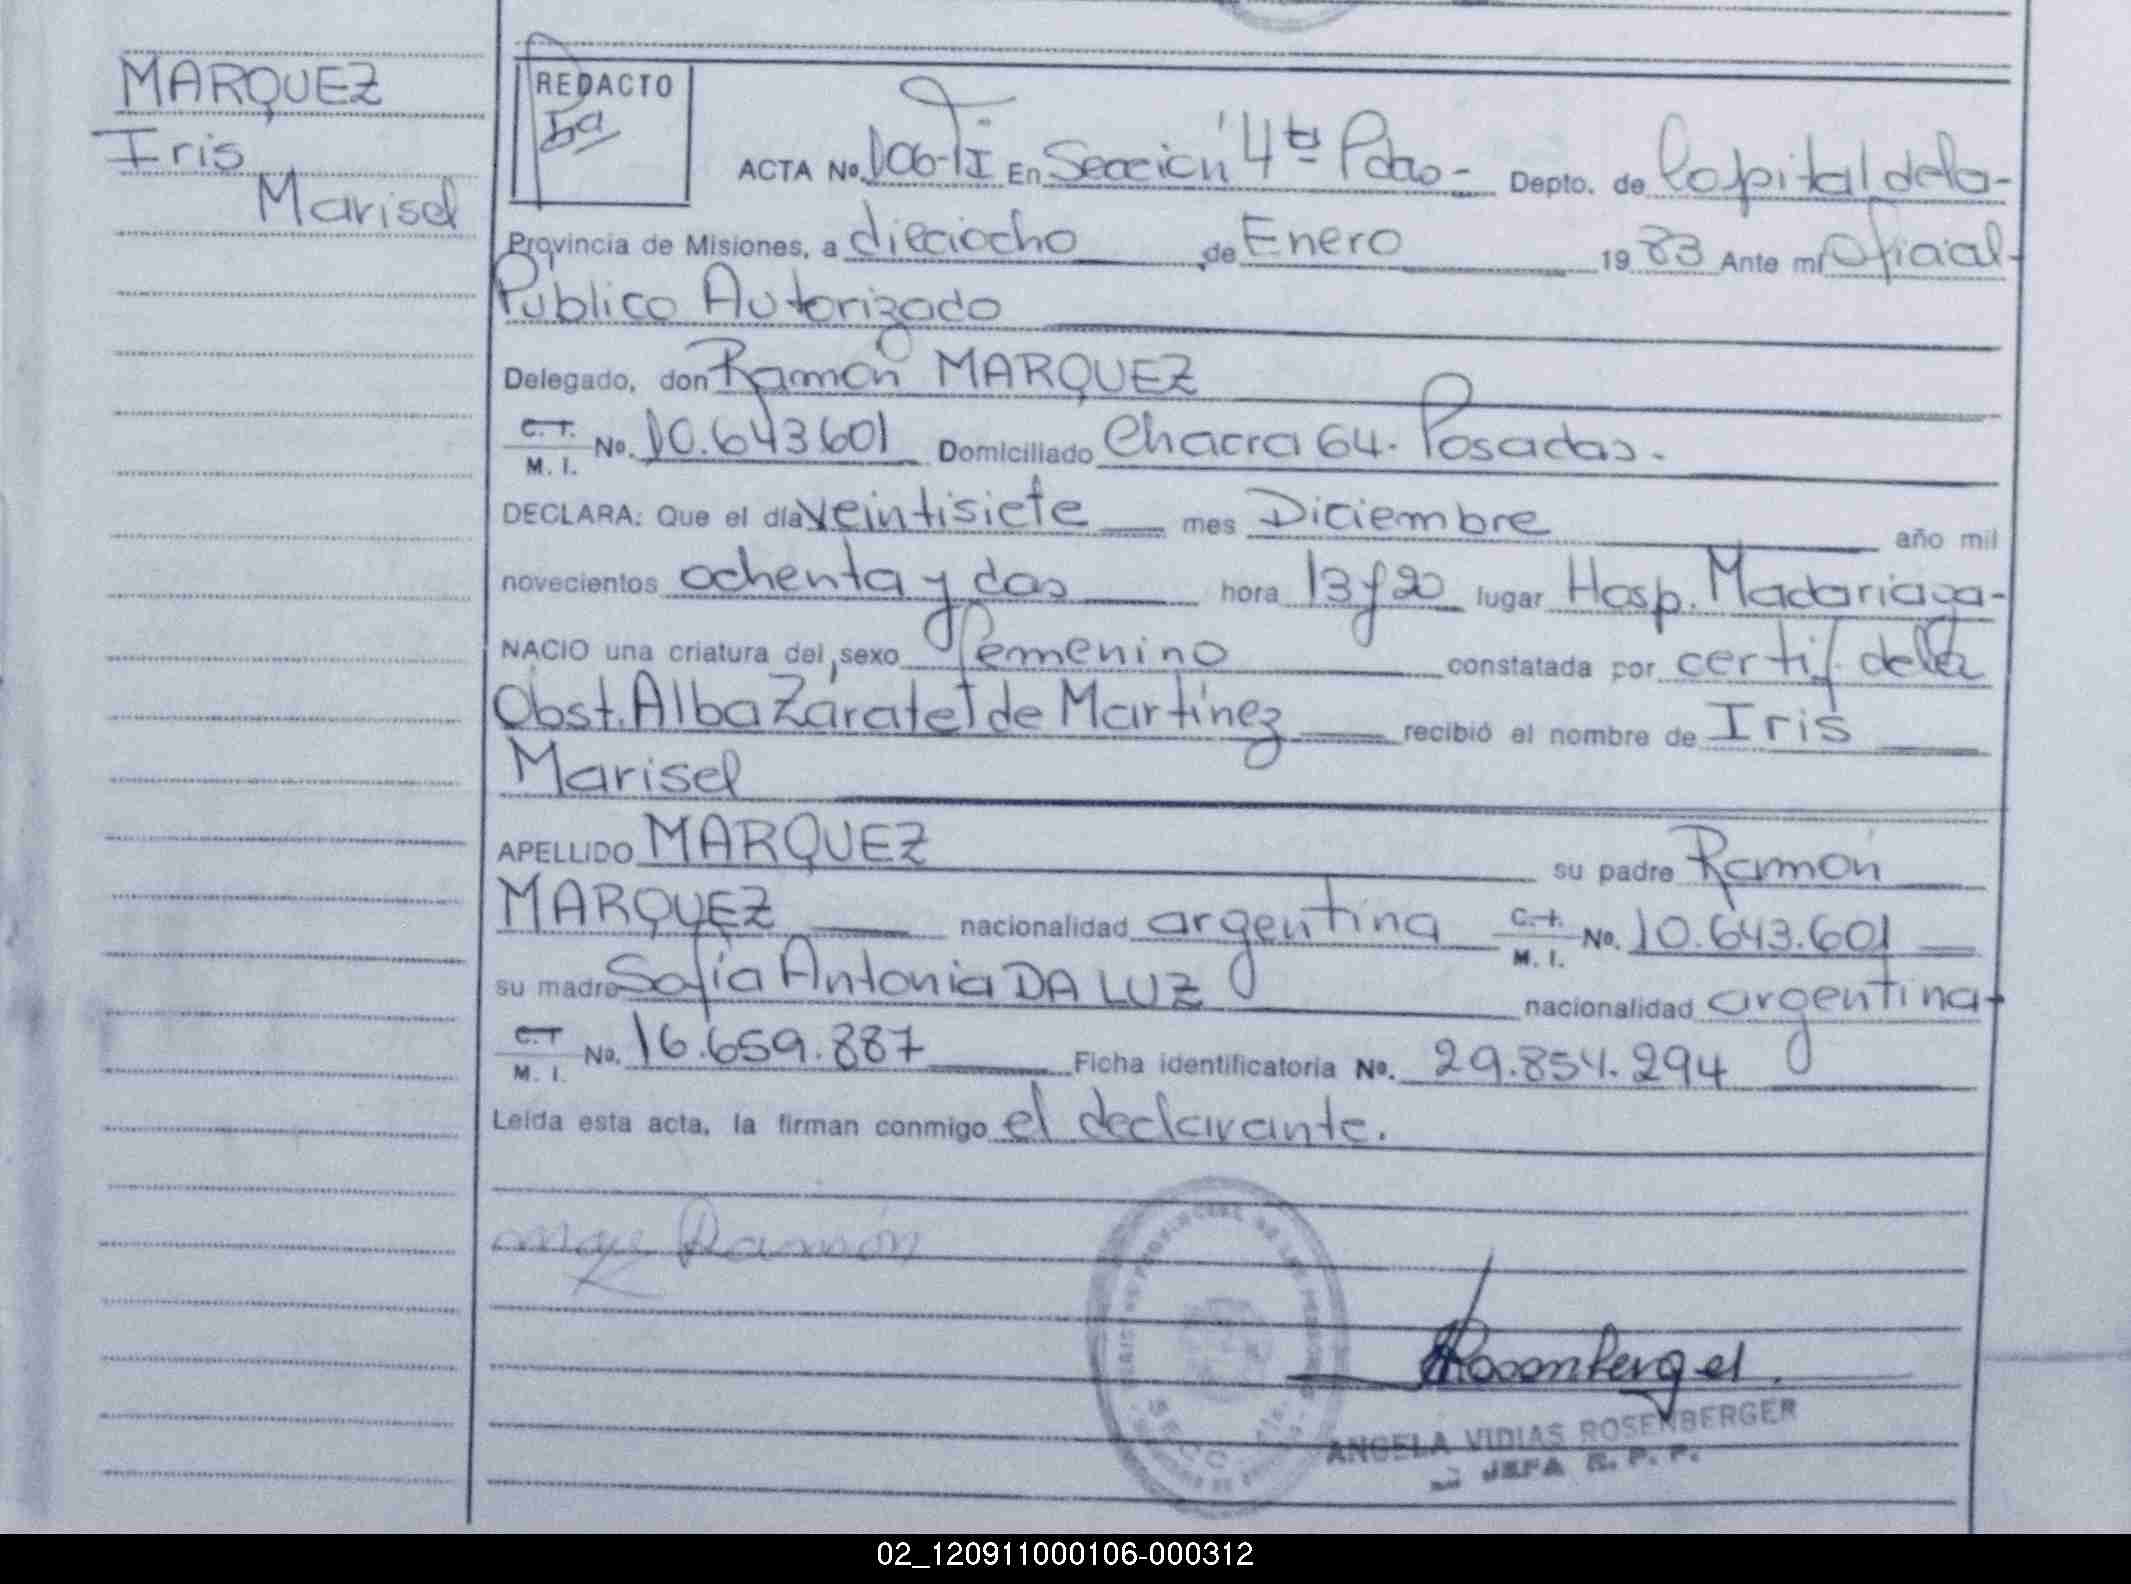 MARQUEZ
Iris
Marisel
REDACTO
ACTA No. 106-TI En Sección 4ta Pdas- Depto. de Capital de la-
Provincia de Misiones, a dieciocho de Enero 1983 Ante mí Oficial-
Publico Autorizado
Delegado, don Ramón MARQUEZ
C. I. M. I. No. 10.643601 Domiciliado Chacra 64. Posadas.
DECLARA: Que el día veintisiete mes Diciembre año mil
novecientos ochenta y dos hora 13y20 lugar Hosp. Madariaga-
NACIO una criatura del sexo femenino constatada por certif de la
Obst. Alba Zárate T de Martínez recibió el nombre de Iris
Marisel
APELLIDO MARQUEZ su padre Ramón
MARQUEZ nacionalidad argentina C. I. M. I. No. 10.643.601
su madre Sofía Antonia DA LUZ nacionalidad argentina-
C. I. M. I. No. 16.659.887 Ficha identificatoria No. 29.854.294
Leída esta acta, la firman conmigo el declarante.
Ramón
Rosenberger
ANGELA VIDIAS ROSENBERGER
JEFA R. P. P.
02_120911000106-000312